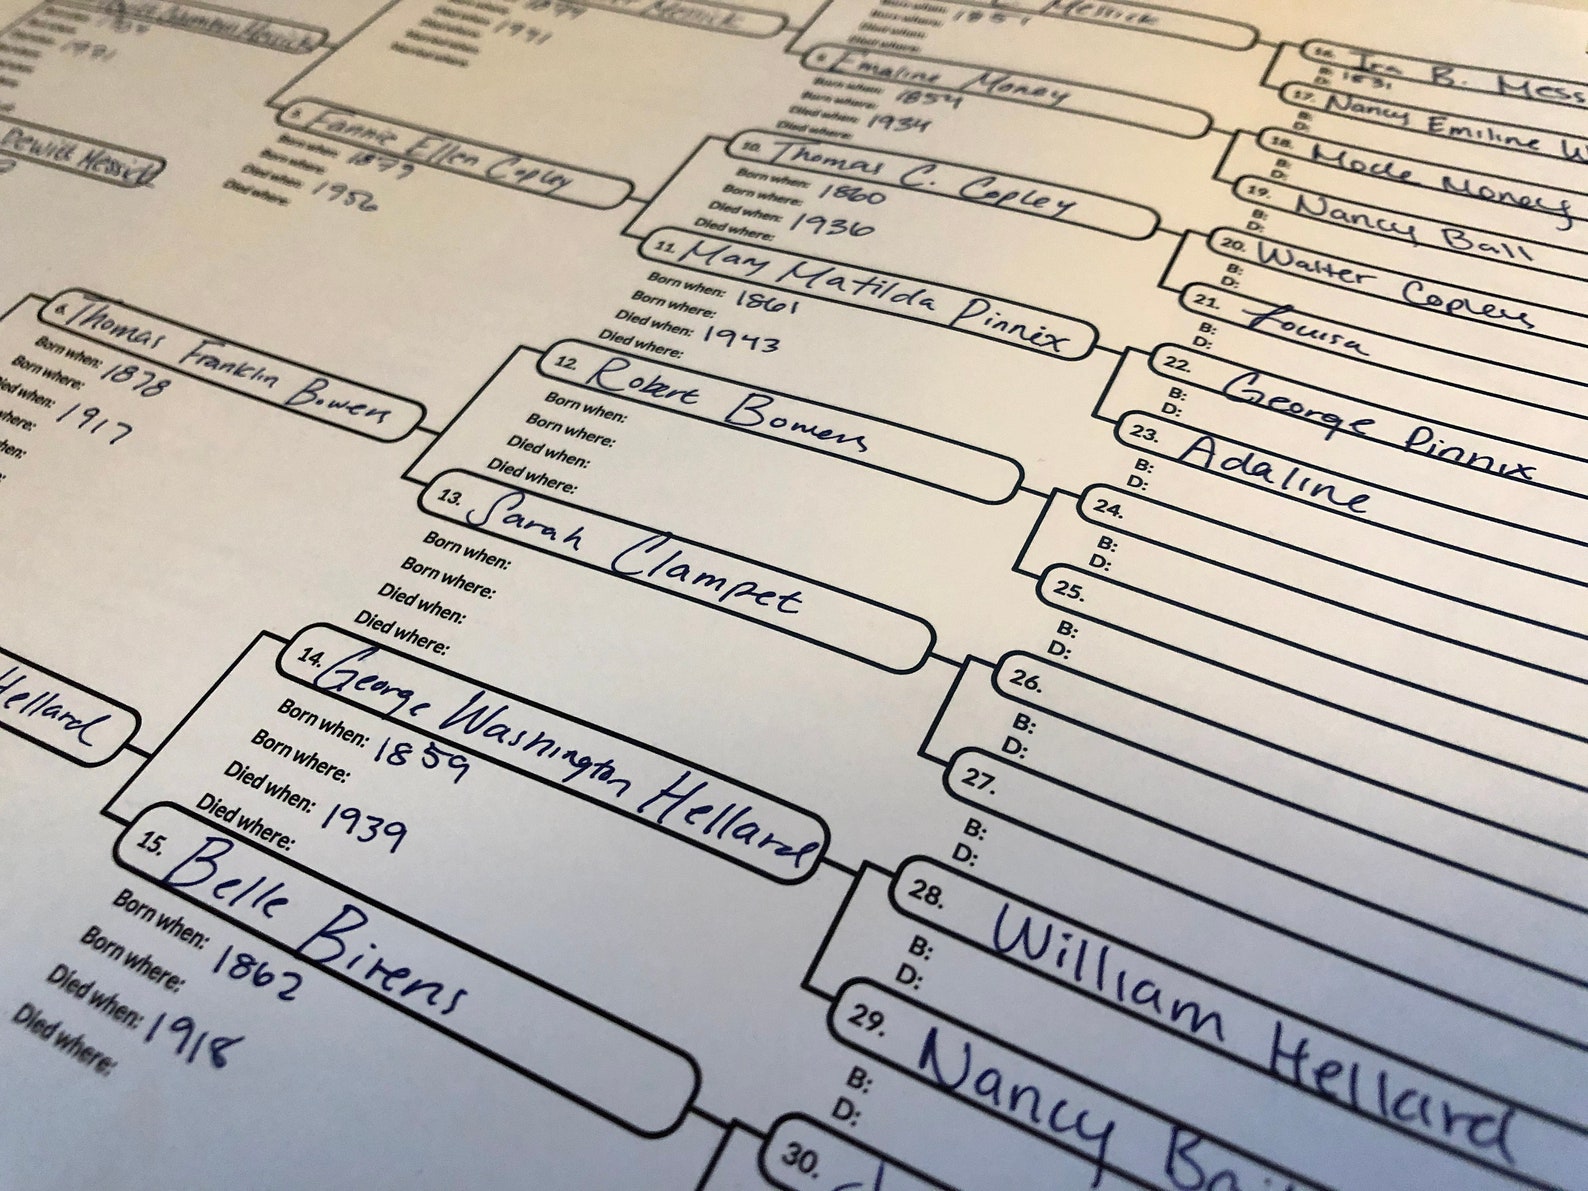 Dewitt Messick
5. Fannie Ellen Copley
Born when: 1879
Born where:
Died when: 1956
Died where:
6. Thomas Franklin Bowers
Born when: 1878
Born where:
Died when: 1917
where:
Hellard
Messick
Emaline Money
Born when: 1854
Born where:
Died when: 1934
Died where:
10. Thomas C. Copley
Born when: 1860
Born where:
Died when: 1936
Died where:
11. Mary Matilda Pinnix
Born when: 1861
Born where:
Died when: 1943
Died where:
12. Robert Bowers
Born when:
Born where:
Died when:
Died where:
13. Sarah Clampet
Born when:
Born where:
Died when:
Died where:
14. George Washington Hellard
Born when: 1859
Born where:
Died when: 1939
Died where:
15. Belle Birens
Born when: 1862
Born where:
Died when: 1918
Died where:
16. Ira B. Mess
B: 1831
D:
17. Nancy Emiline W
B:
D:
18. Mode Money
B:
D:
19. Nancy Ball
B:
D:
20. Walter Copley
B:
D:
21. Louisa
B:
D:
22. George Pinnix
B:
D:
23. Adaline
B:
D:
24.
B:
D:
25.
B:
D:
26.
B:
D:
27.
B:
D:
28. William Hellard
B:
D:
29. Nancy Bai
B:
D:
30.